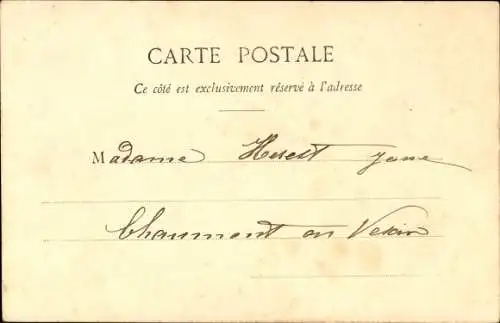 CARTE POSTALE
Ce côté est exclusivement réservé à l'adresse
Madame
Chaumont en Vexin